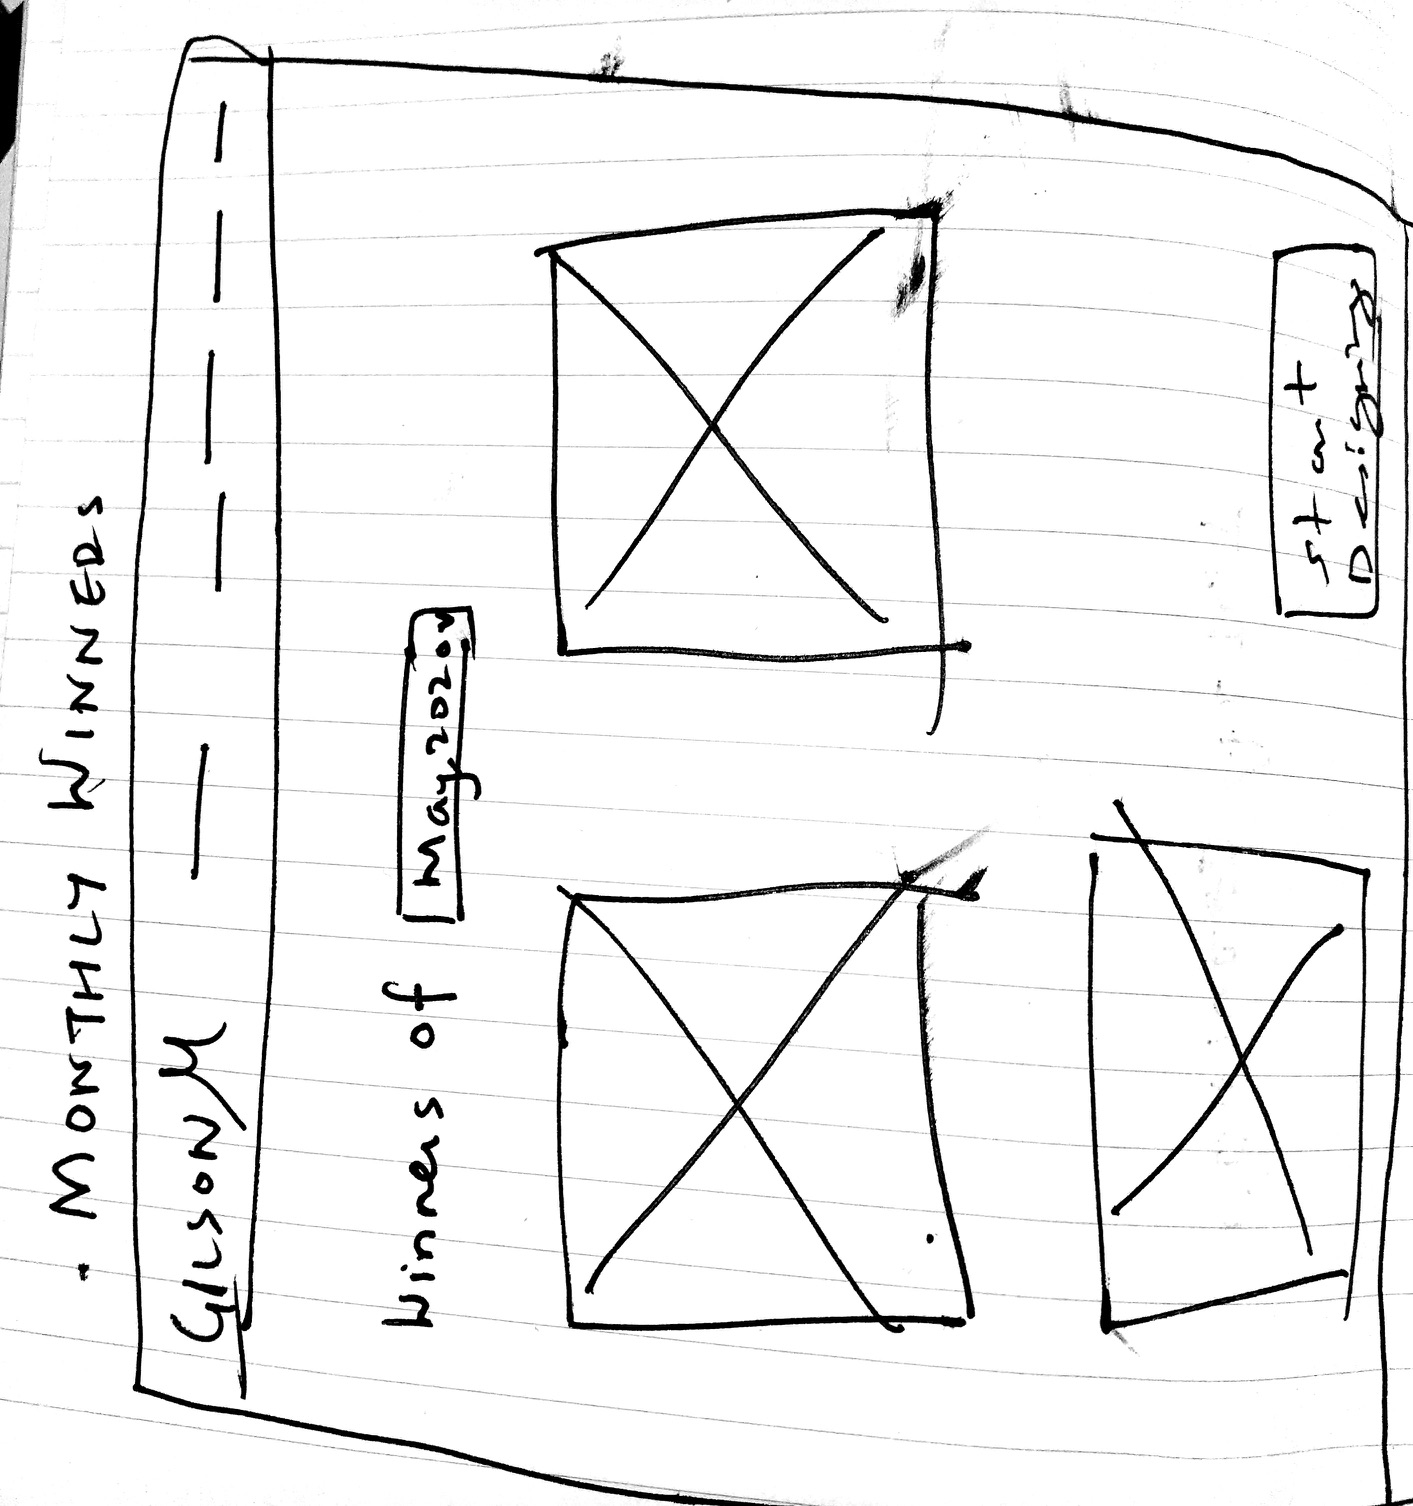 • MONTHLY WINNERS
GILSON M
Winners of May 2020 v
Start
Designing